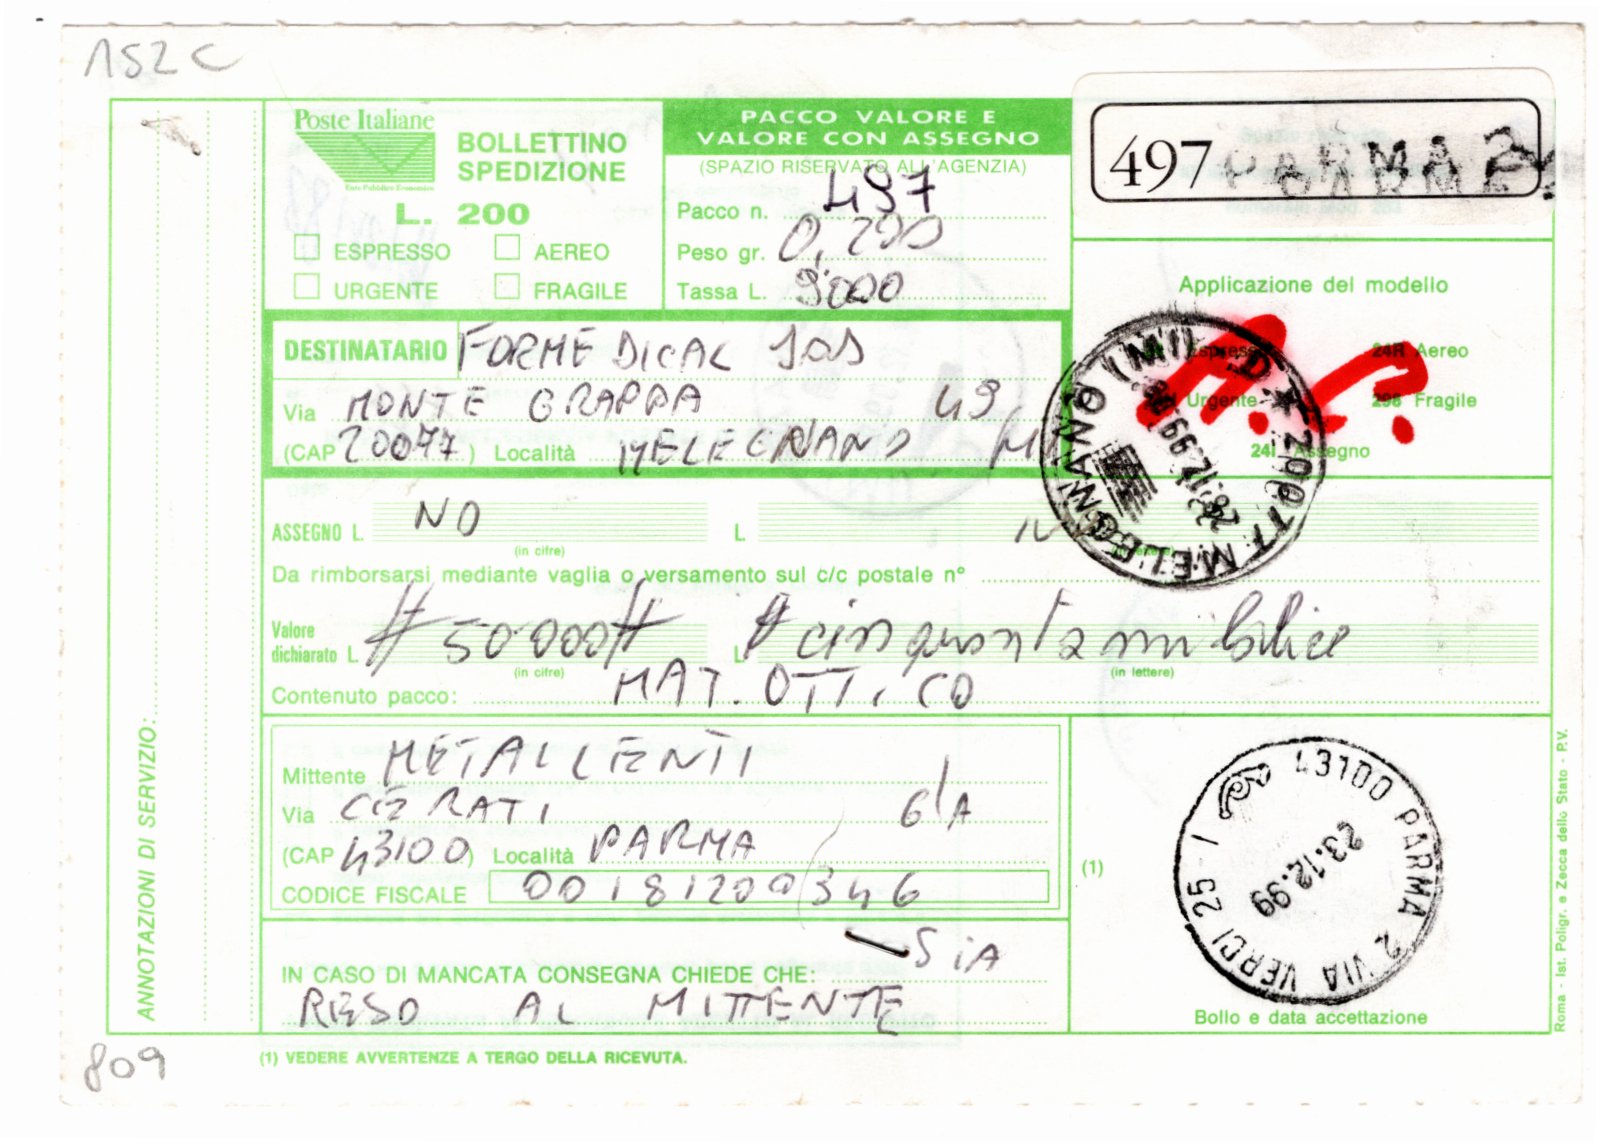 152 C
Poste Italiane
Ente Pubblico Economico
BOLLETTINO
SPEDIZIONE
L. 200
ESPRESSO AEREO
URGENTE FRAGILE
PACCO VALORE E
VALORE CON ASSEGNO
(SPAZIO RISERVATO ALL'AGENZIA)
Pacco n. 497
Peso gr. 0,290
Tassa L. 9000
497 PARMA 2
Applicazione del modello
Espresso 24R Aereo
Urgente 298 Fragile
24I Assegno
20077 MELEGNANO (MI)
28.12.99
DESTINATARIO FORMEDICAL
Via MONTE GRAPPA 49
(CAP 20077) Località MELEGNANO MI
ASSEGNO L. NO L. NO
(in cifre) (in lettere)
Da rimborsarsi mediante vaglia o versamento sul c/c postale n°
Valore
dichiarato L. # 50000 # L. # cinquantamilalire
(in cifre) (in lettere)
Contenuto pacco: MAT. OTTICO
Mittente METALLENTI
Via CERATI 6/A
(CAP 43100) Località PARMA
CODICE FISCALE 00181200346
IN CASO DI MANCATA CONSEGNA CHIEDE CHE: SIA
RESO AL MITTENTE
(1)
43100 PARMA 2 VIA VERDI 25-1
23.12.99
Bollo e data accettazione
ANNOTAZIONI DI SERVIZIO:
Roma - Ist. Poligr. e Zecca dello Stato - P.V.
(1) VEDERE AVVERTENZE A TERGO DELLA RICEVUTA.
809